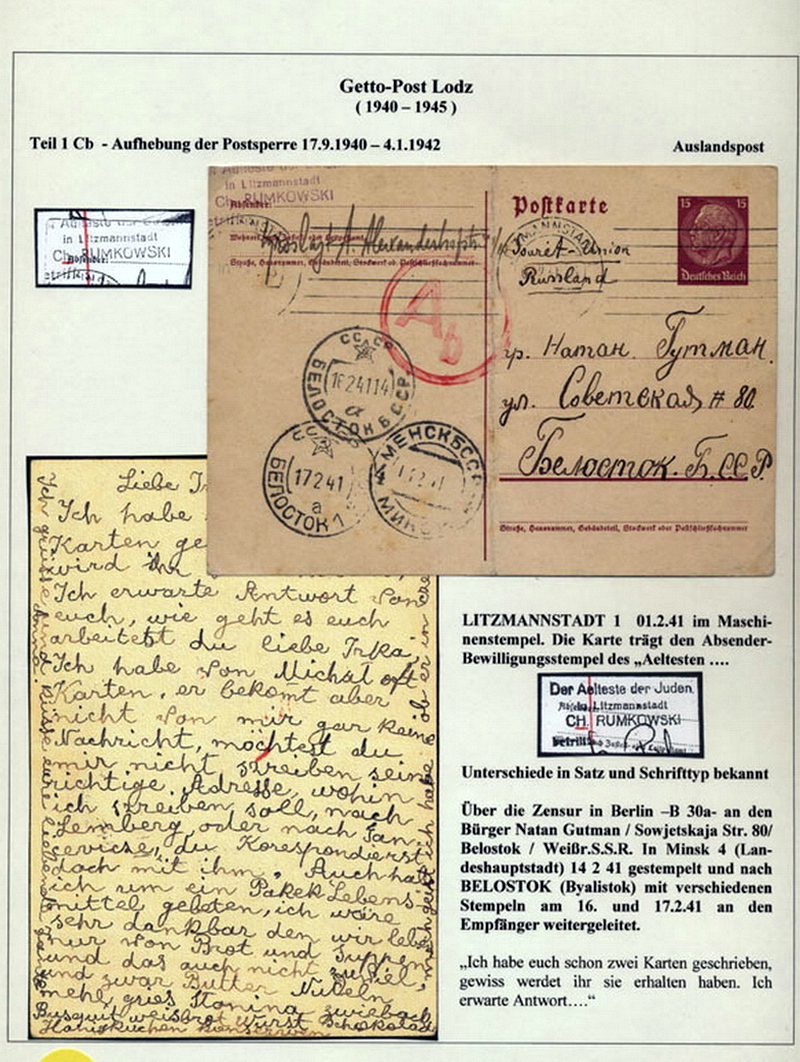 Getto-Post Lodz
( 1940 – 1945 )
Teil 1 Cb - Aufhebung der Postsperre 17.9.1940 – 4.1.1942
Auslandspost
in Litzmannstadt
Ch. RUMKOWSKI
Absender:
Straße, Hausnummer, Gebäudeteil, Stockwerk od. Postschließfachnummer
Postkarte
15 15
Deutsches Reich
Souret-Union
Russland
гр. Натан Гутман.
ул. Советская # 80
Белосток. Б.ССР
Straße, Hausnummer, Gebäudeteil, Stockwerk oder Postschließfachnummer
Ab
СССР
16 2 41 14
БЕЛОСТОК БССР
а
СССР
17 2 41
а
БЕЛОСТОК 1
МЕНСК БССР
4
in Litzmannstadt
Ch. RUMKOWSKI
Liebe
Ich habe
Karten ge
wird ihr
Ich erwarte Antwort von
euch, wie geht es euch
arbeitetst du liebe Irka,
Ich habe von Michal oft
Karten, er bekomt aber
nicht von mir gar keine
Nachricht, möchtest du
mir nicht sreiben seine
richtige Adresse, wohin
ich sreiben soll, nach
Lemberg, oder nach Jan
cevicse, du Korespondierst
doch mit ihm. Auch hatt
ich um ein Pakek Lebens-
mittel gebeten, ich wäre
sehr dankbar den wir leben
nur von Brot und Suppen
und das auch nicht zu viel,
und zwar Butter Nudeln
mehl, gries Stonina zwieback
Busquit weisbrot wurst Schokolad
Honigkuchen Konserven
LITZMANNSTADT 1 01.2.41 im Maschi-
nenstempel. Die Karte trägt den Absender-
Bewilligungsstempel des „Aeltesten ….
Der Aelteste der Juden
Litzmannstadt
CH. RUMKOWSKI
Unterschiede in Satz und Schrifttyp bekannt
Über die Zensur in Berlin –B 30a- an den
Bürger Natan Gutman / Sowjetskaja Str. 80/
Belostok / Weißr.S.S.R. In Minsk 4 (Lan-
deshauptstadt) 14 2 41 gestempelt und nach
BELOSTOK (Byalistok) mit verschiedenen
Stempeln am 16. und 17.2.41 an den
Empfänger weitergeleitet.
„Ich habe euch schon zwei Karten geschrieben,
gewiss werdet ihr sie erhalten haben. Ich
erwarte Antwort….“